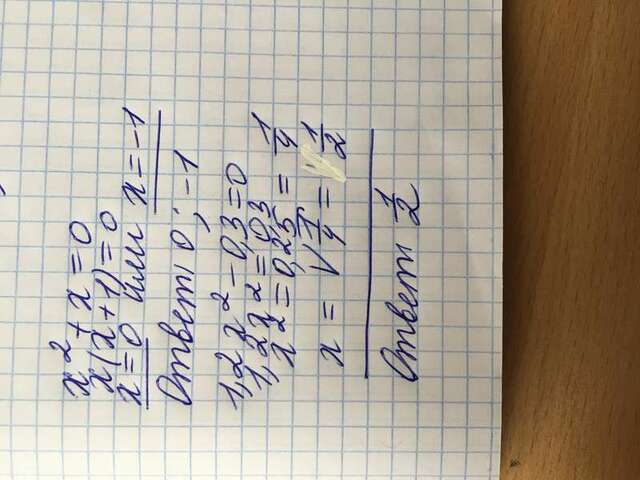 x² + x = 0
x(x+1) = 0
x = 0 или x = -1
Ответ: 0 ; -1
1,2x² - 0,3 = 0
1,2x² = 03
x² = 0,25 = 1/4
x = √1/4 = 1/2
Ответ: 1/2